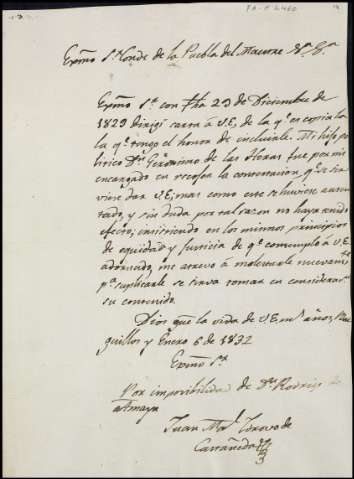 Exṃo Sʳ Conde de la Puebla del Maestre
Exmo Sʳ. con fha 29 de Diciembre de
1829 dirigi carta á V.E, de la qᵉ es copia la
qᵉ tengo el honor de incluirle. Mi hijo po-
litico Dⁿ Geronimo de las Heras fue por mi
encargado en recoger la contestacion qᵉ se sir-
viese dar V.E; mas como este se huviese ausen-
tado, y sin duda por tal razon no haya tenido
efecto; insistiendo en los mismos principios
de equidad y justicia de qᵉ contemplo á V.E.
adornado, me atrevo á molestarle nuevamᵗᵉ
pᵃ suplicarle se sirva tomar en consideraⁿ
su contenido.
Dios gue la vida de V.E. mˢ años,
guillos y Enero 6 de 1832
Exmo Sʳ.
Por imposibilidad de Dⁿ Rodrigo de
Amaya
Juan Mᵃˡ
Castañeda